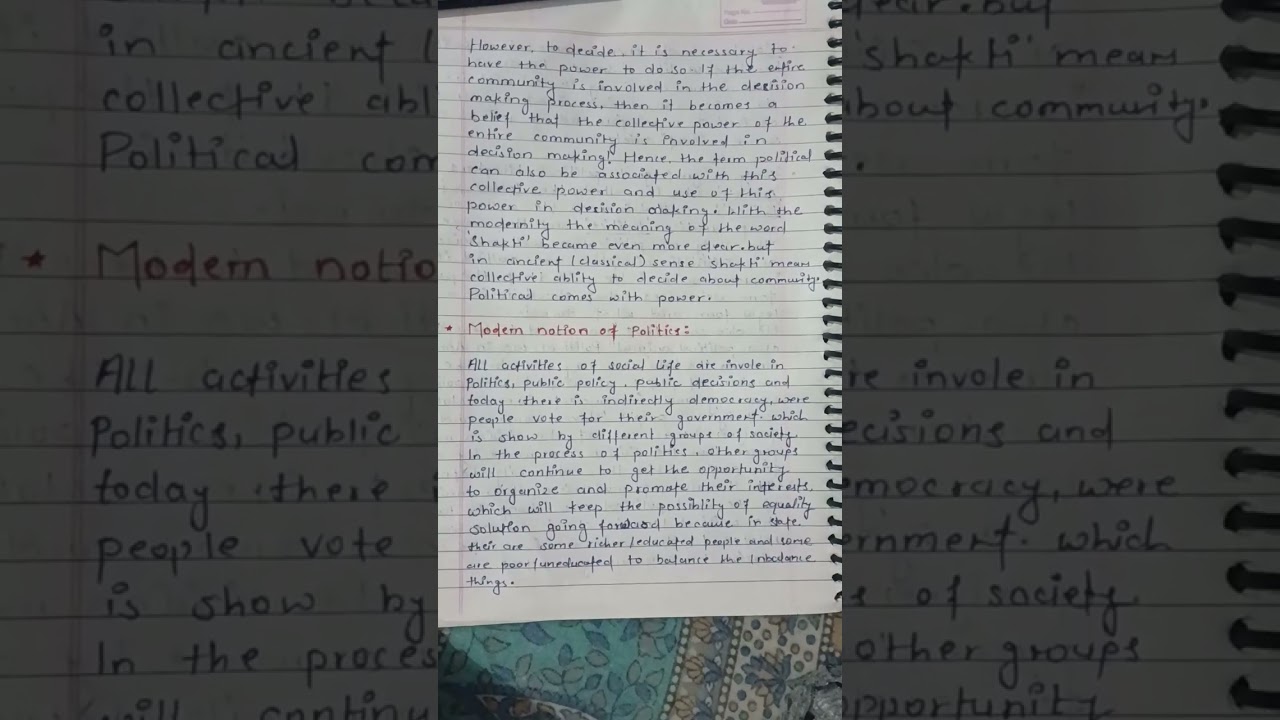 Page No.
Date
However, to decide, it is necessary to
have the power to do so. If the entire
community is involved in the decision
making process, then it becomes a
belief that the collective power of the
entire community is involved in
decision making! Hence, the term political
can also be associated with this
collective power and use of this
power in decision making. With the
modernity the meaning of the word
'Shakti' became even more clear. but
in ancient (classical) sense 'shakti' means
collective ablity to decide about community.
Political comes with power.
* Modern notion of Politics:
All activities of social life are invole in
Politics, public policy, public decisions and
today there is indirectly democracy, were
people vote for their government. which
is show by different groups of society.
In the process of politics, other groups
will continue to get the opportunity
to organize and promote their interests,
which will keep the possiblity of equality
solution going forward because in state
their are some richer/educated people and some
are poor/uneducated to balance the Inbalance
things.